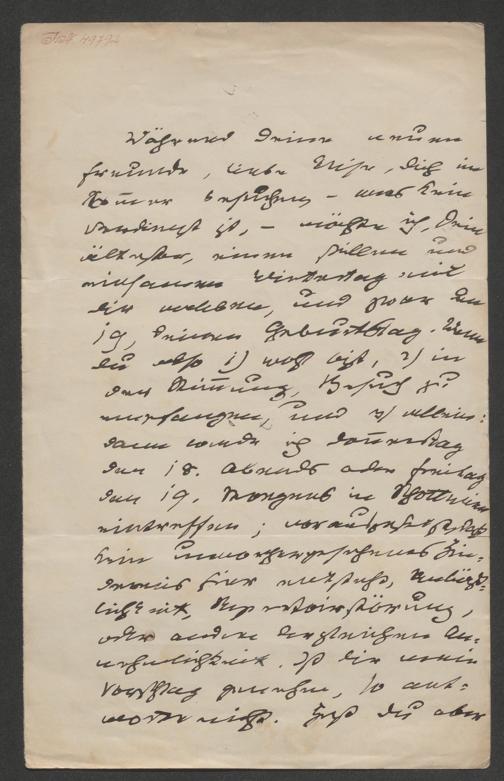 Während Deine neuen
Freunde, liebe, Dich im
Sommer besuchen – was kein
Verdienst ist, – möchte ich, Dein
ältester, einen stillen und
einsamen Wintertag mit
Dir verleben, und zwar den
19, Deinen Geburtstag. Wenn
Du also 1) wohl bist, 2) in
der Stimmung, Besuch zu
empfangen, und 3) allein:
dann werde ich Donnerstag
den 18. Abends oder Freitag
den 19. Morgens in
eintreffen; vorausgesetzt, daß
kein unvorhergesehenes Hin-
dernis hier entsteht, Unpäß-
lichkeit, Repertoirstörung,
oder andere dergleichen Un-
annehmlichkeit. Ist Dir mein
Vorschlag genehm, so ant-
worte nicht. Hast Du aber